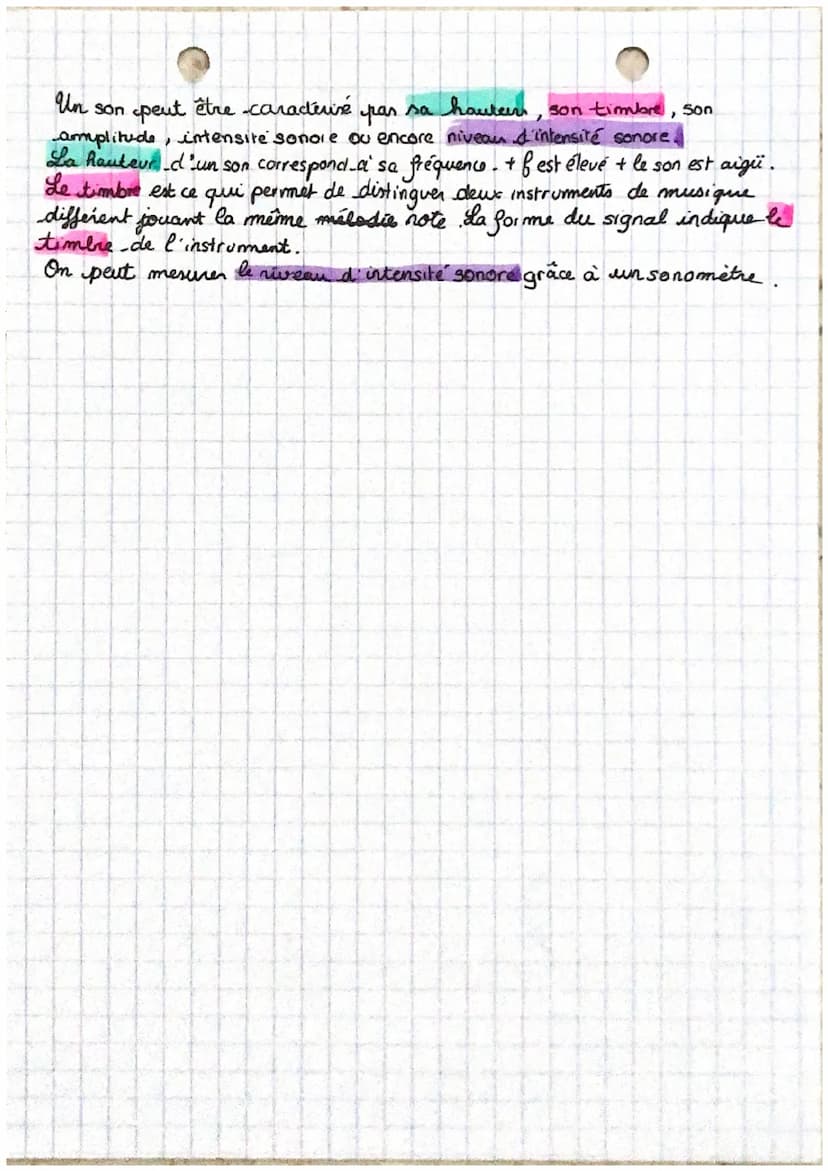 Un son peut être caractérisé par sa hauteur, son timbre, son
amplitude, intensité sonore ou encore niveau d'intensité sonore.
La hauteur d'un son correspond à sa fréquence. + f est élevé + le son est aigü.
Le timbre est ce qui permet de distinguer deux instruments de musique
différent jouant la même mélodie note. La forme du signal indique le
timbre de l'instrument.
On peut mesurer le niveau d'intensité sonore grâce à un sonomètre.